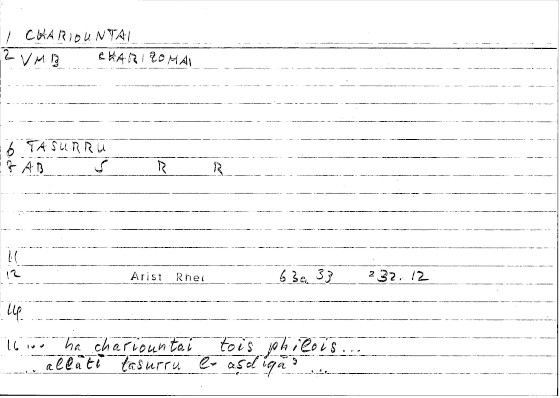 1 CHARIOUNTAI
2 VMB CHARIZOMAI
6 TASURRU
7 AB S R R
11
12 Arist Rhet 63a 33 232.12
14
16 ... ha chariountai tois philois...
.. allātī tasurru l- aṣdiqāʾ ...